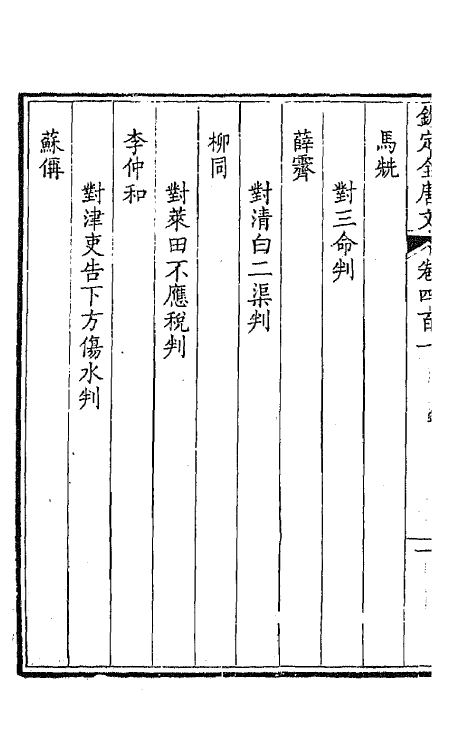 欽定全唐文 卷四百一 目錄 一
馬兟
對三命判
薛霽
對清白二渠判
柳同
對萊田不應稅判
李仲和
對津吏告下方傷水判
蘇倎